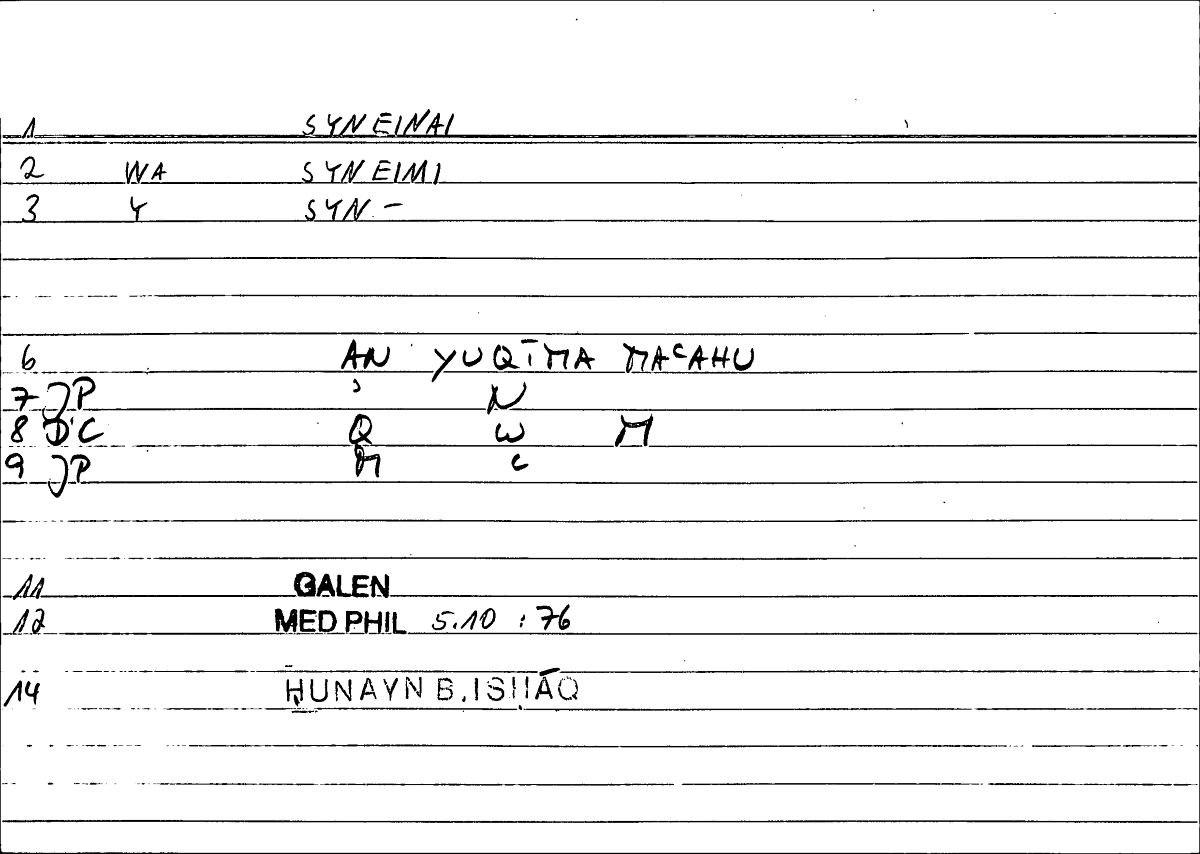 1 SYNEINAI
2 WA SYNEIMI
3 Y SYN -
6 AN YUQĪMA MAᶜAHU
7 JP ʾ N
8 DC Q W M
9 JP M ᶜ
11 GALEN
12 MED PHIL 5.10 : 76
14 ḤUNAYN B. ISḤĀQ